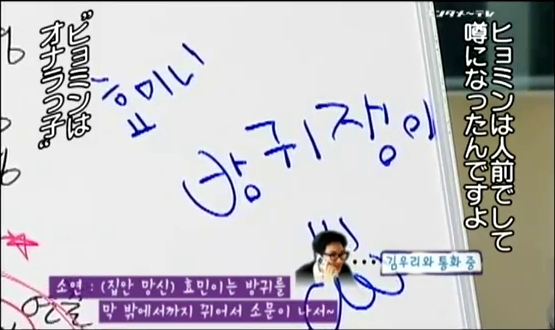 エンタメ~テレ
ヒョミンは人前でして
噂になったんですよ
"ヒョミンは
オナラっ子"
효미니
방귀쟁이
김우리와 통화 중
소연 : (집안 망신) 효민이는 방귀를
막 밖에서까지 뀌어서 소문이 나서~